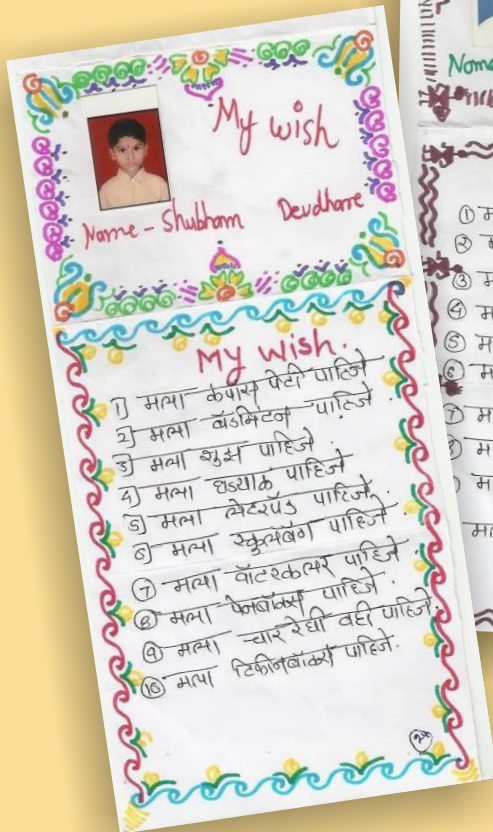 My wish
Name - Shubham Devdhare
My wish.
1] मला कंपास पेटी पाहिजे
2] मला बॅडमिटन पाहिजे.
3] मला शुझ पाहिजे.
4] मला घड्याळ पाहिजे
5] मला लेटरपॅड पाहिजे.
6] मला स्कुलबॅग पाहिजे
⑦ मला वॉटरकलर पाहिजे.
⑧ मला पेनबॉक्स पाहिजे.
⑨ मला चार रेघी वही पाहिजे.
⑩ मला टिफीनबॉक्स पाहिजे.
Name
① म
②
③ म
④ म
⑤ म
⑥ म
म
म
म